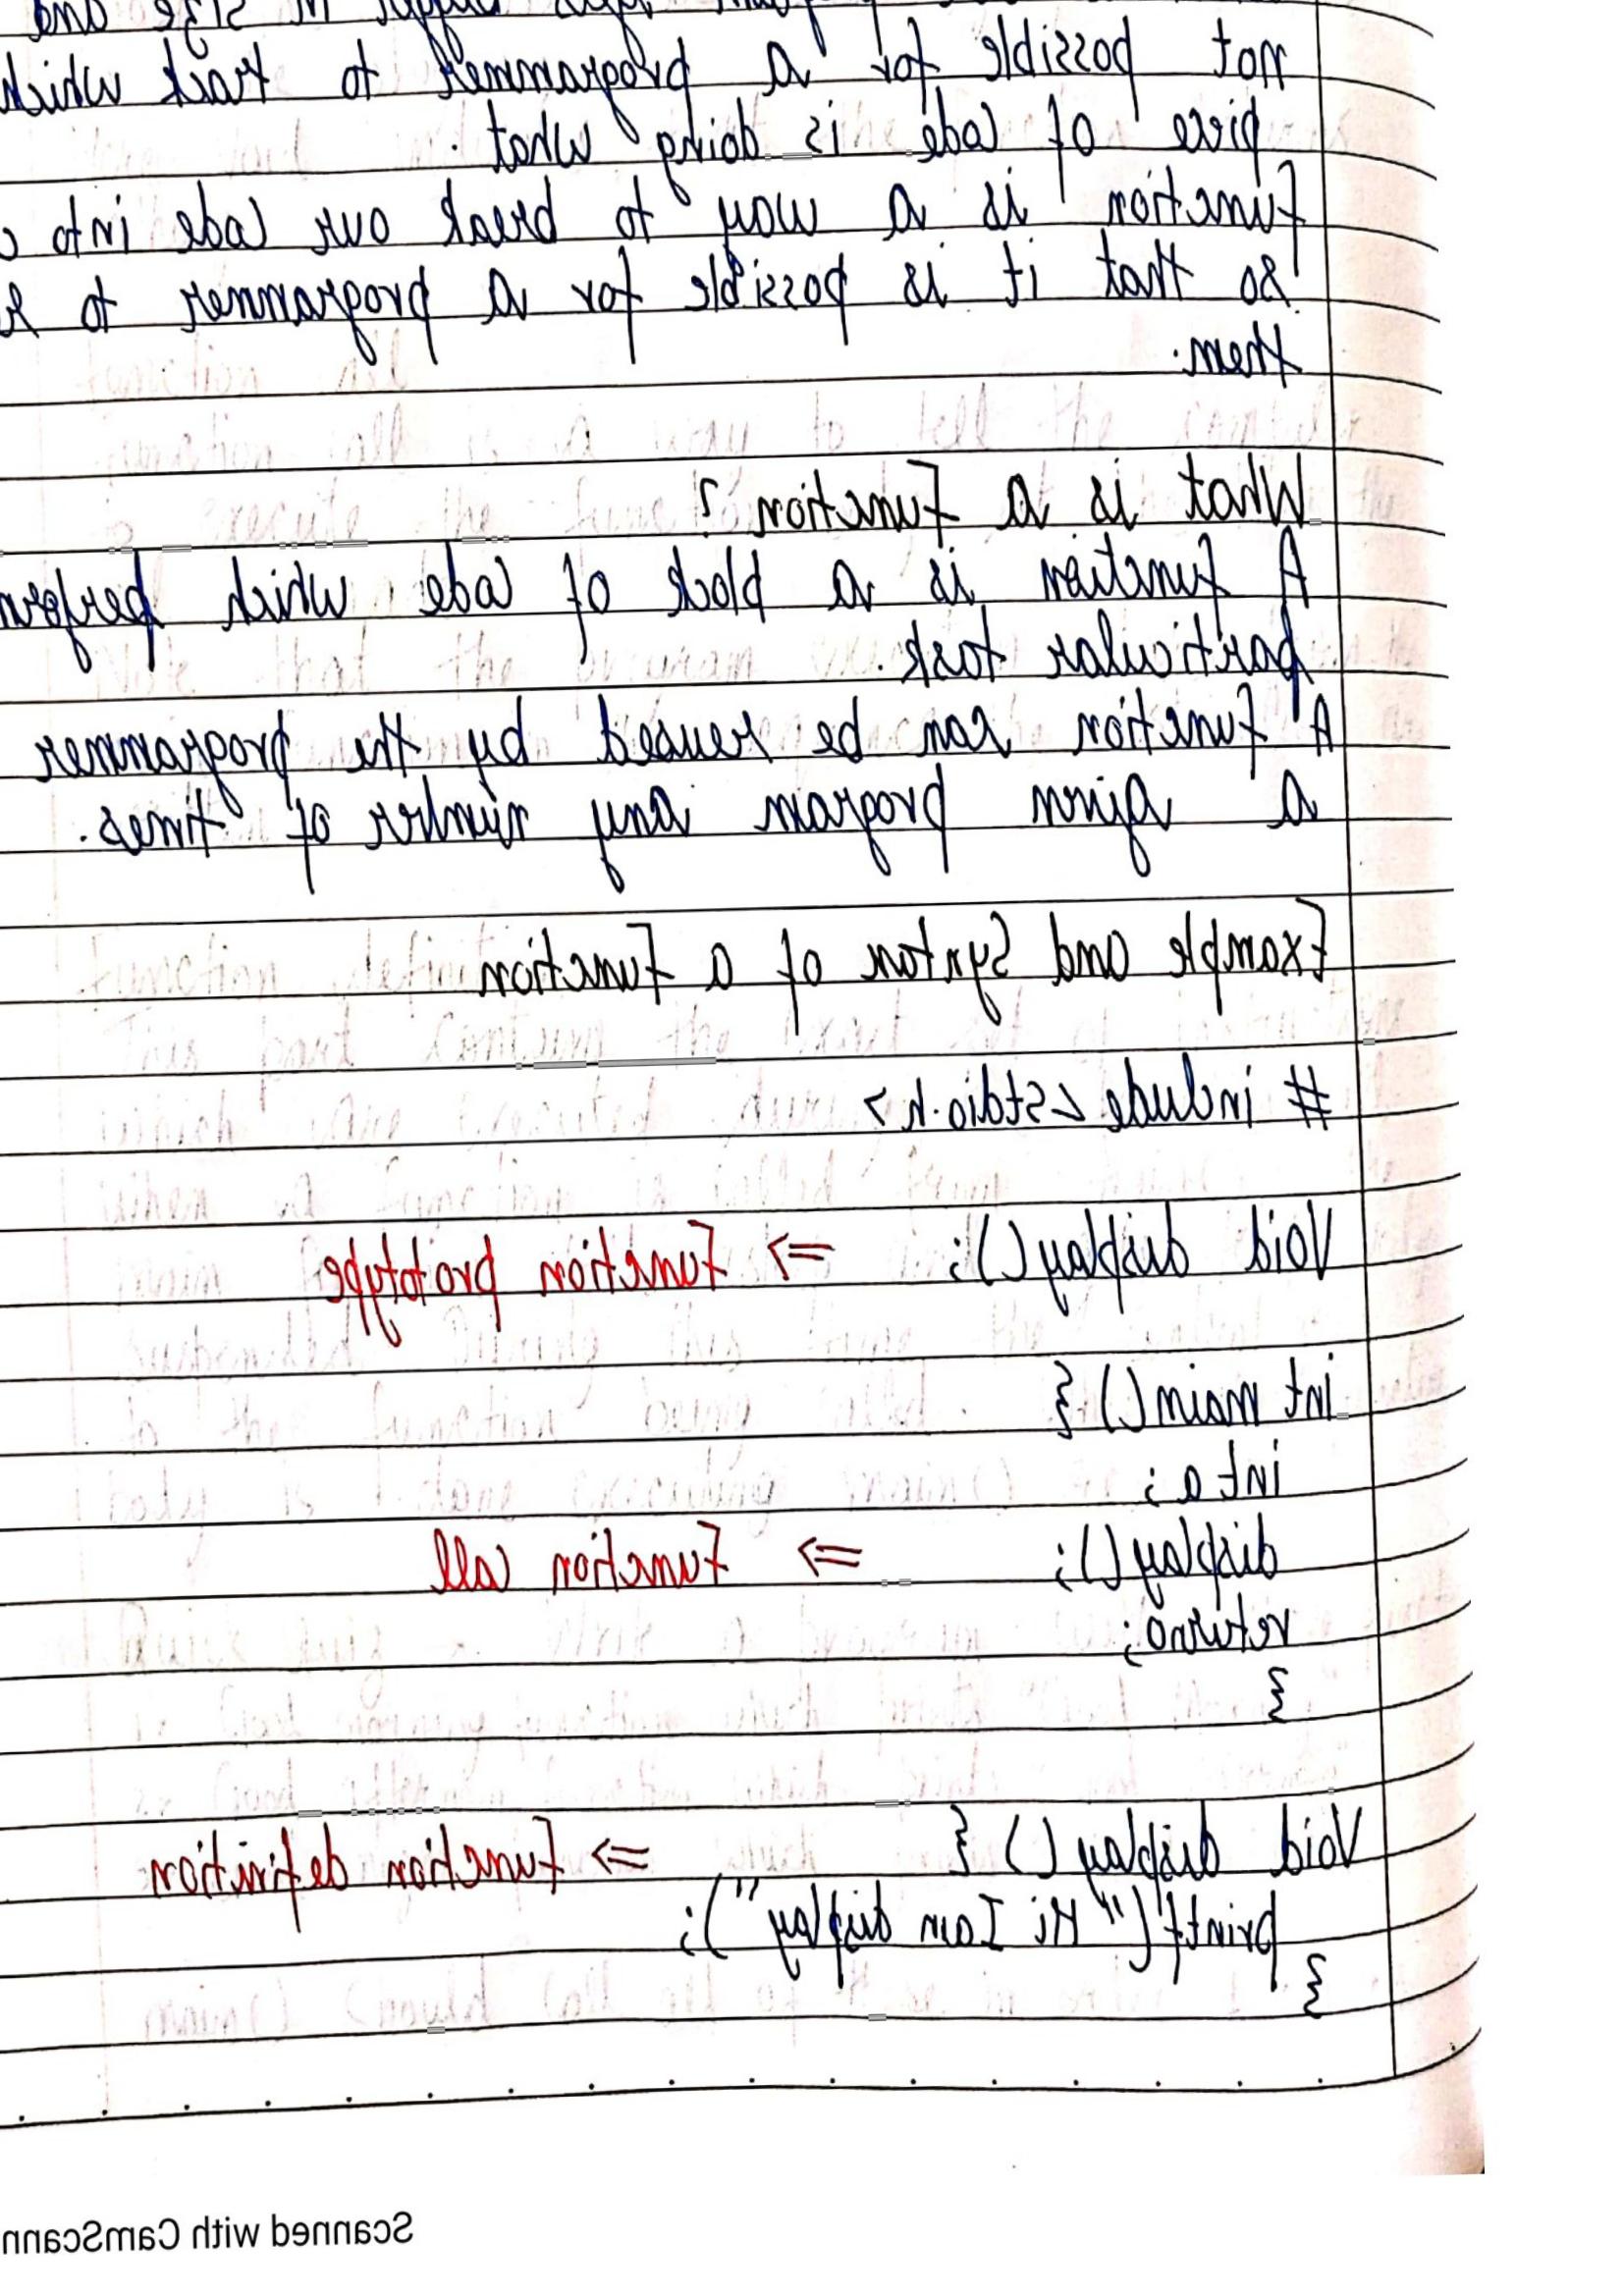 size and
not possible for a programmer to track which
piece of code is doing what.
function is a way to break our code into
so that it is possible for a programmer to
them.
What is a function?
A function is a block of code which
particular task.
A function can be reused by the programmer
a given program any number of times.
Example and Syntax of a function
# include <stdio.h>
Void display(); => function prototype
int main() {
int a;
display(); => function call
return0;
}
Void display() { => function definition
printf("Hi I am display");
}
Scanned with